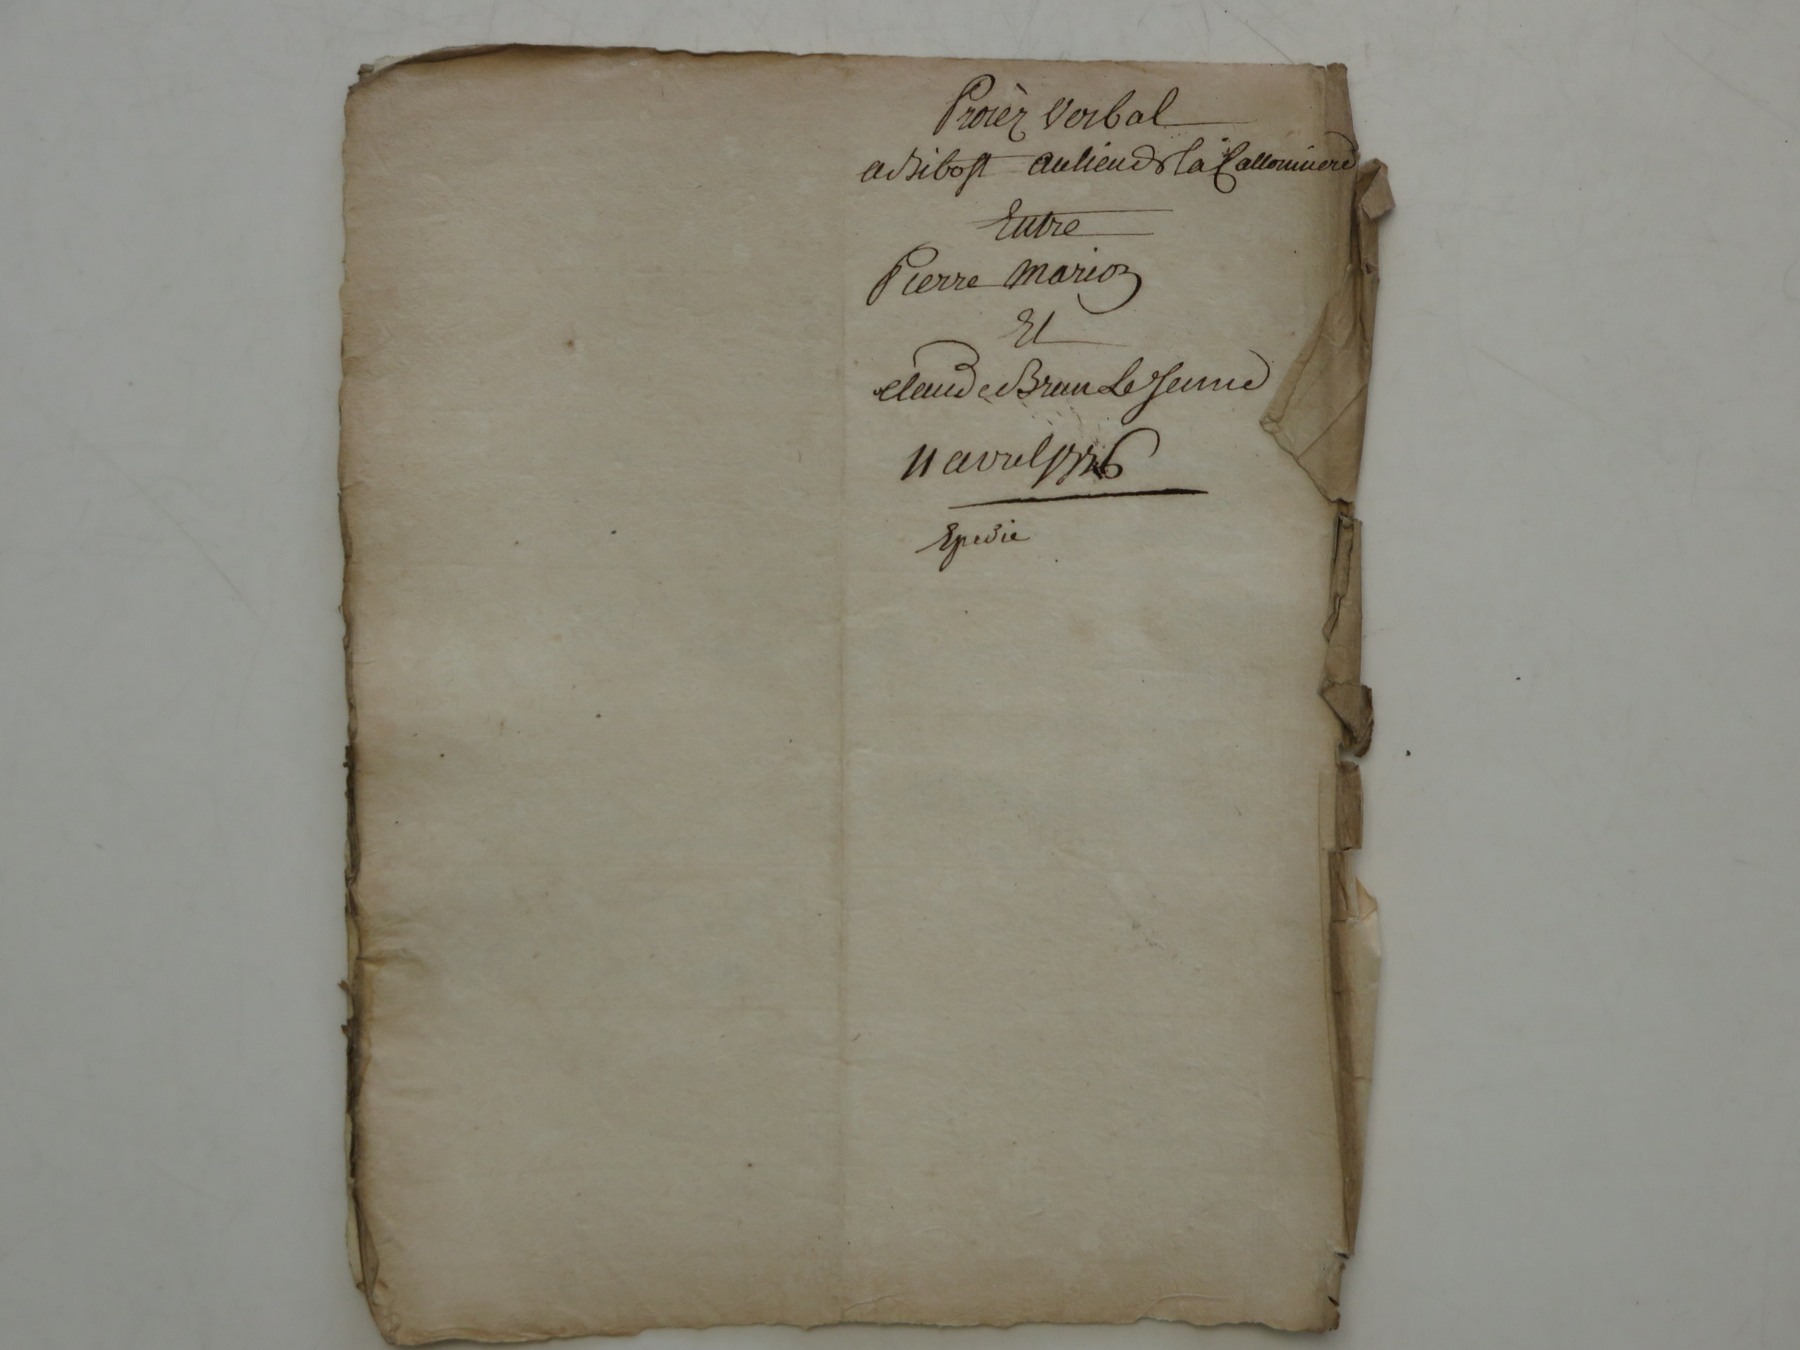 Procèz Verbal
a Bibost au lieu de la Callonniere
Entre
Pierre Marion
Et
claude Brun Le Jeune
11 avril
Expedie